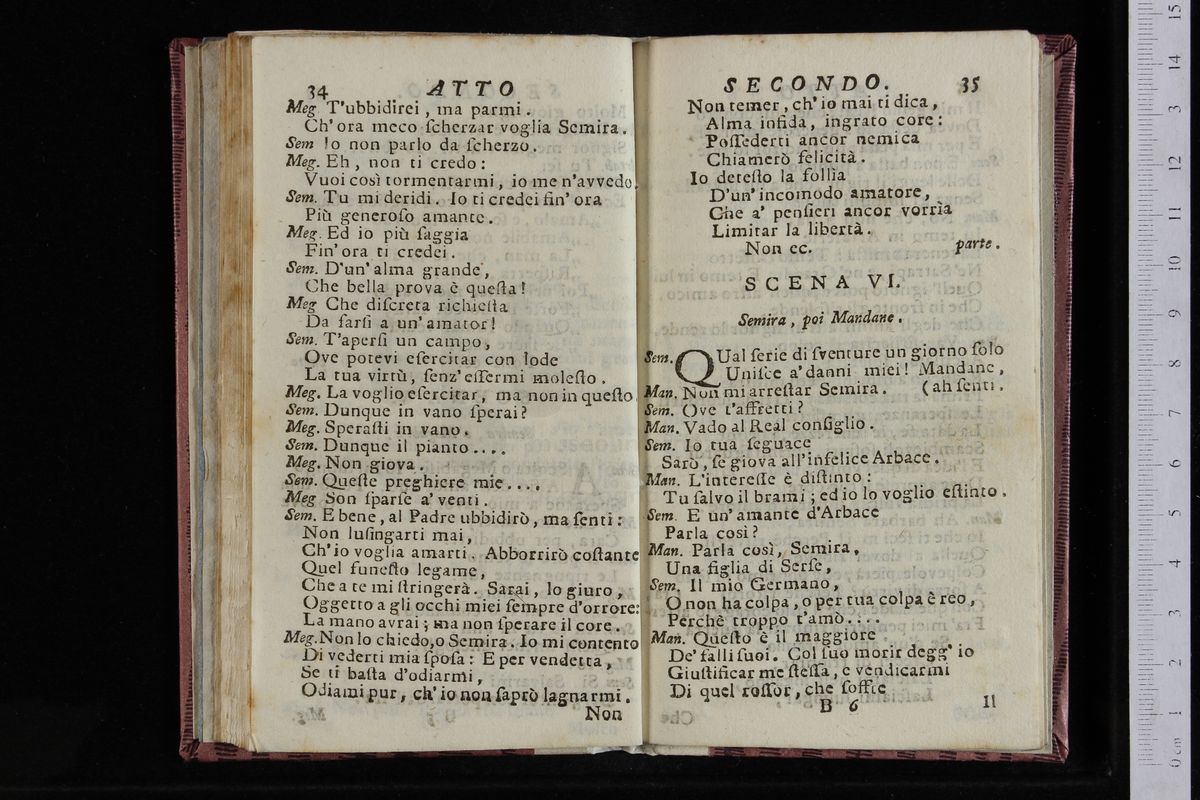 34 ATTO
Meg T'ubbidirei, ma parmi.
Ch'ora meco ſcherzar voglia Semira.
Sem Io non parlo da ſcherzo.
Meg. Eh, non ti credo:
Vuoi così tormentarmi, io me n'avvedo.
Sem. Tu mi deridi. Io ti credei fin'ora
Più generoſo amante.
Meg. Ed io più ſaggia
Fin'ora ti credei.
Sem. D'un'alma grande,
Che bella prova è queſta!
Meg Che diſcreta richieſta
Da farſi a un'amator!
Sem. T'aperſi un campo,
Ove potevi eſercitar con lode
La tua virtù, ſenz'eſſermi moleſto.
Meg. La voglio eſercitar, ma non in queſto
Sem. Dunque in vano ſperai?
Meg. Speraſti in vano.
Sem. Dunque il pianto....
Meg. Non giova.
Sem. Queſte preghiere mie....
Meg Son ſparſe a' venti.
Sem. E bene, al Padre ubbidirò, ma ſenti:
Non luſingarti mai,
Ch'io voglia amarti. Abborrirò coſtante
Quel funeſto legame,
Che a te mi ſtringerà. Sarai, lo giuro,
Oggetto a gli occhi miei ſempre d'orrore:
La mano avrai; ma non ſperare il core.
Meg. Non lo chiedo, o Semira. Io mi contento
Di vederti mia ſpoſa: E per vendetta,
Se ti baſta d'odiarmi,
Odiami pur, ch'io non ſaprò lagnarmi.
Non
SECONDO. 35
Non temer, ch'io mai ti dica,
Alma infida, ingrato core:
Poſſederti ancor nemica
Chiamerò felicità.
Io deteſto la follìa
D'un'incomodo amatore,
Che a' penſieri ancor vorrìa
Limitar la libertà.
Non ec. parte.
SCENA VI.
Semira, poi Mandane.
Sem. QUal ſerie di ſventure un giorno ſolo
Uniſce a' danni miei! Mandane,
Man. Non mi arreſtar Semira. (ah ſenti.
Sem. Ove t'affretti?
Man. Vado al Real conſiglio.
Sem. Io tua ſeguace
Sarò, ſe giova all'infelice Arbace.
Man. L'intereſſe è diſtinto:
Tu ſalvo il brami; ed io lo voglio eſtinto.
Sem. E un'amante d'Arbace
Parla così?
Man. Parla così, Semira,
Una figlia di Serſe,
Sem. Il mio Germano,
O non ha colpa, o per tua colpa è reo,
Perchè troppo t'amò....
Man. Queſto è il maggiore
De' falli ſuoi. Col ſuo morir degg'io
Giuſtificar me ſteſſa, e vendicarmi
Di quel roſſor, che ſoffre
B 6 Il